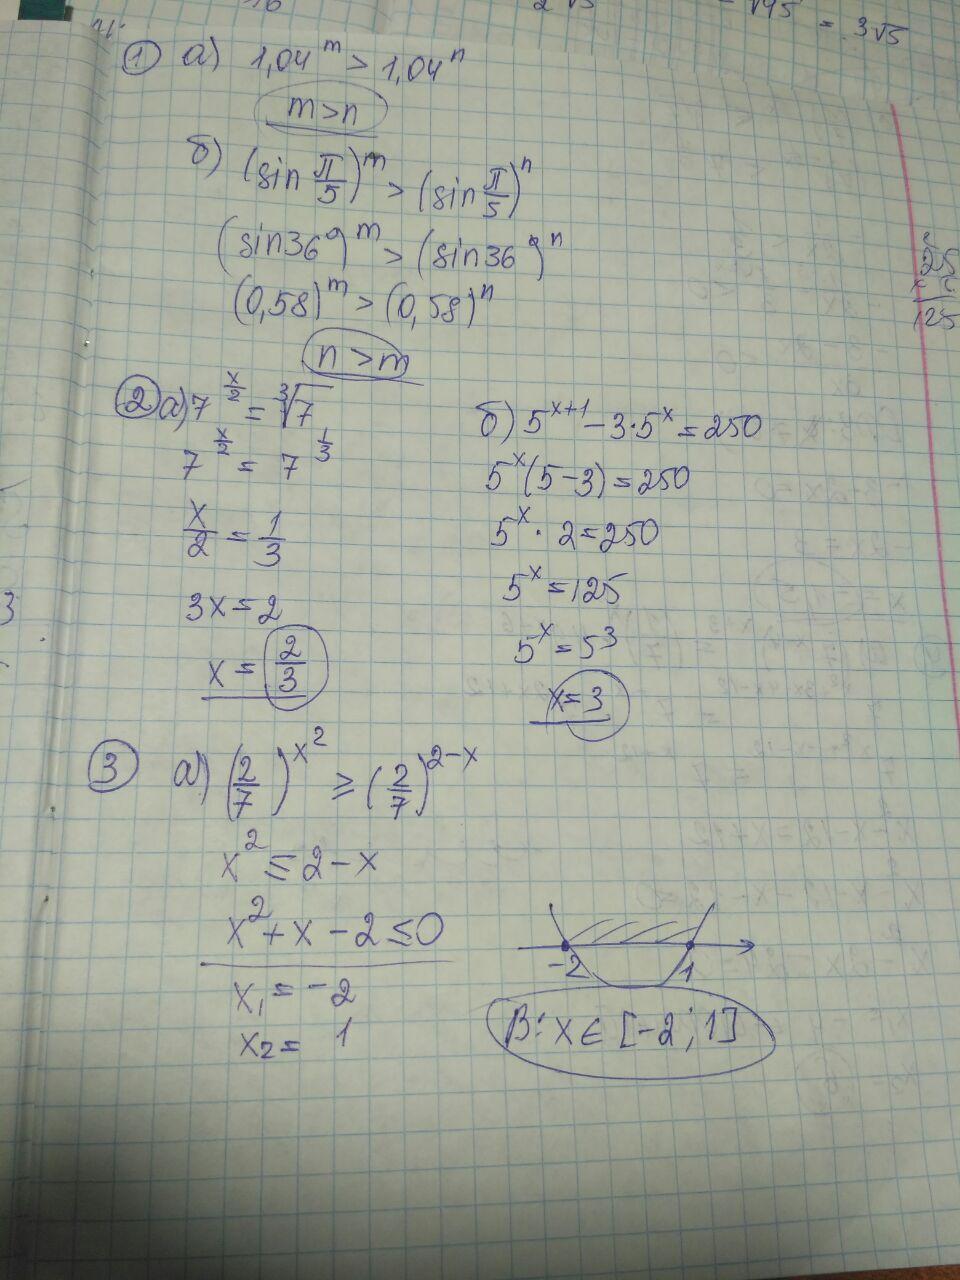 2√5
= 3√5
① а) 1,04^m > 1,04^n
m>n
б) (sin π/5)^m > (sin π/5)^n
(sin36°)^m > (sin36°)^n
(0,58)^m > (0,58)^n
n >m
② а) 7^(x/2) = ∛7
7^(x/2) = 7^(1/3)
x/2 = 1/3
3x = 2
x = 2/3
б) 5^(x+1) – 3·5^x = 250
5^x(5–3) = 250
5^x · 2 = 250
5^x = 125
5^x = 5^3
x = 3
③ а) (2/7)^(x^2) ≥ (2/7)^(2–x)
x^2 ≤ 2–x
x^2 + x – 2 ≤ 0
x₁ = –2
x₂ = 1
–2 1
В: x ∈ [–2; 1]
25
125
3